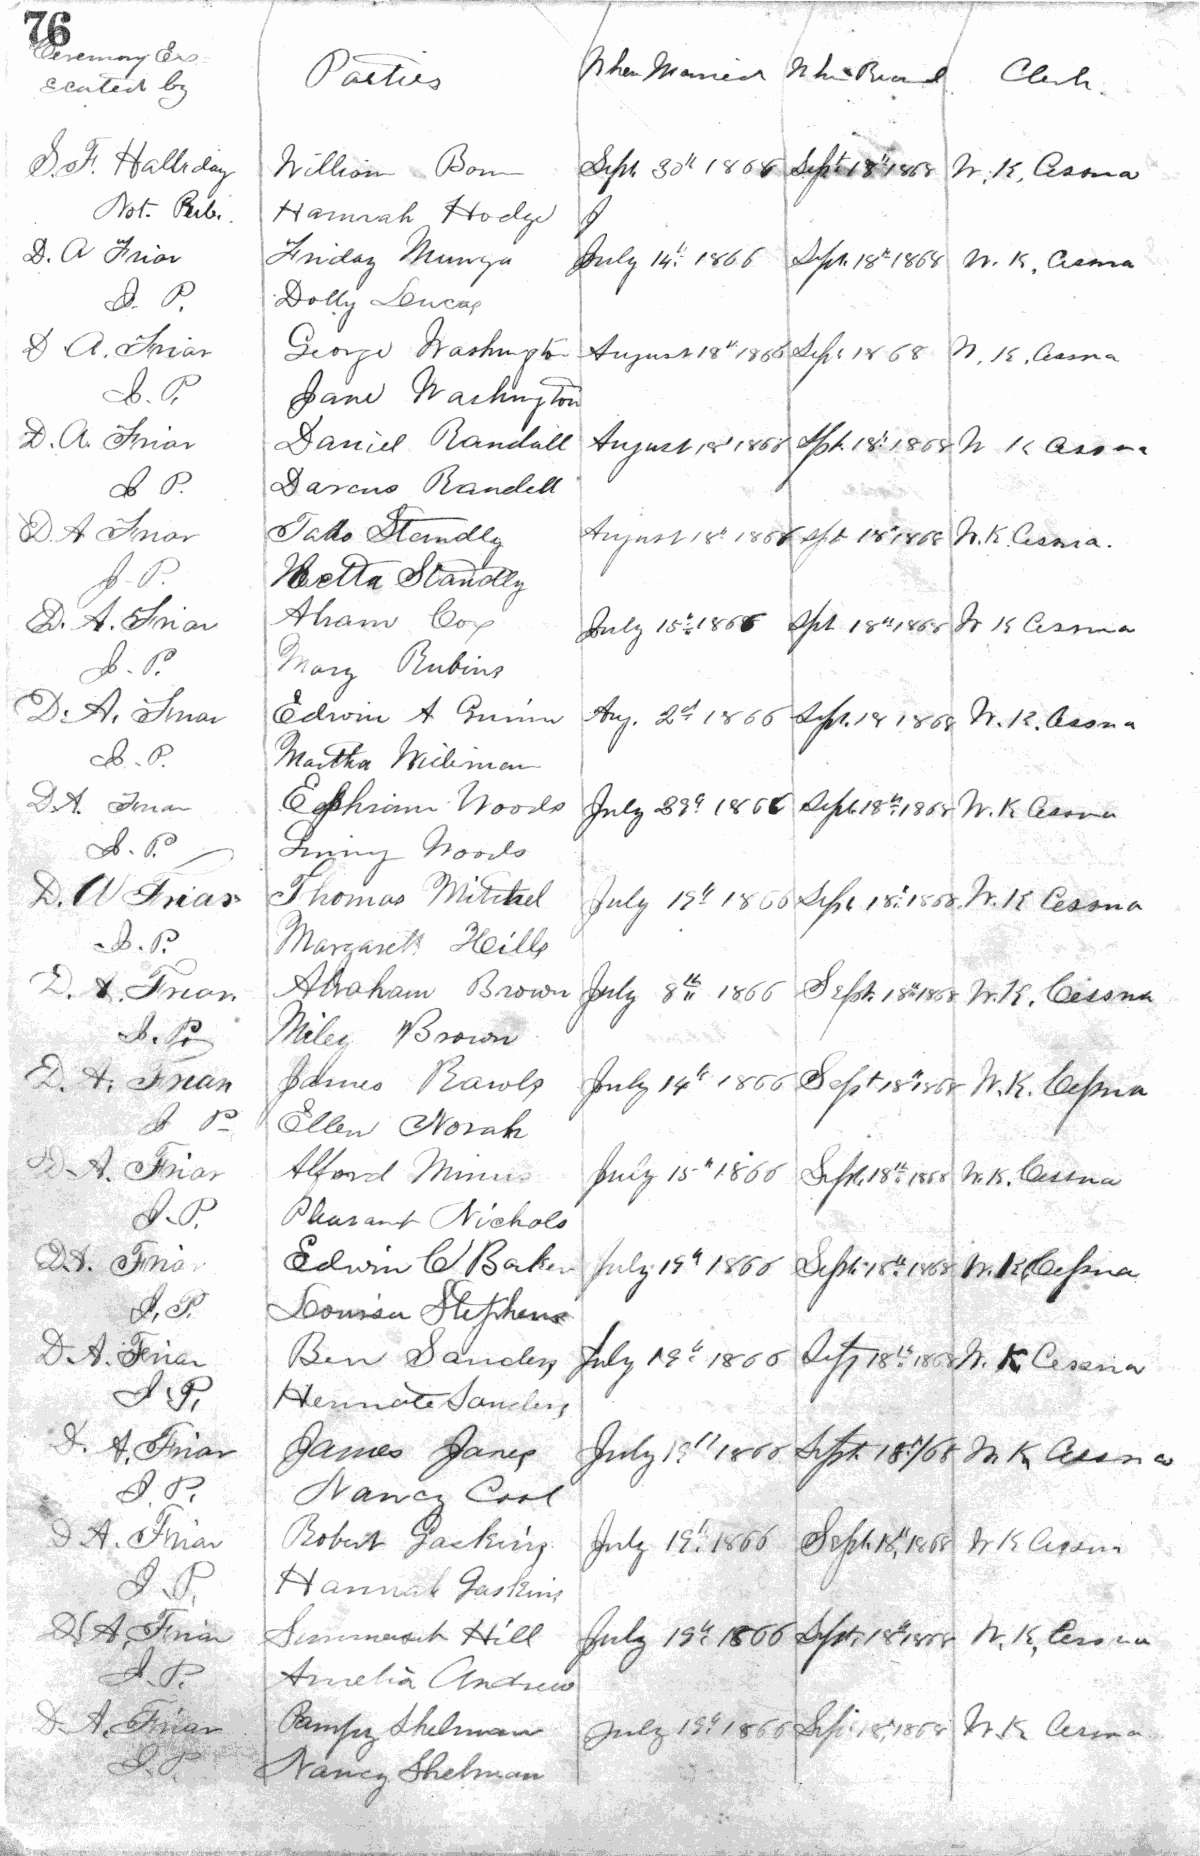 76
Ceremony Ex- Parties When Married When Record Clerk.
ecuted by
S. F. Halliday William Sept. 30th 1866 Sept 18th 1868 W. K. Cessna
Not. Pub. Hannah Hodge
D. A Friar Friday Munga July 14th 1866 Sept. 18th 1868 W. K. Cessna
J. P. Dolly Leucas
D A. Friar George Washington August 18th 1866 Sept 1868 W. K. Cessna
J. P. Jane Washington
D. A. Friar Daniel Randall August 18th 1866 Sept. 18th 1868 W K Cessna
J P. Darcus Randell
D. A Friar Standly August 18th 1866 Sept 18th 1868 W. K. Cessna.
J. P. Hetta Standly
D. A. Friar Abram Cox July 15th 1866 Sept 18th 1868 W K Cessna
J. P. Mary Rubins
D. A. Friar Edwin A Aug. 2nd 1866 Sept. 18 1868 W. K. Cessna
J. P. Martha
D. A. Friar Ephriam Woods July 29th 1866 Sept. 18th 1868 W. K Cessna
J. P. Woods
D. A Friar Thomas Mitchel July 19th 1866 Sept 18th 1868 W. K Cessna
J. P. Margarett Hills
D. A. Friar Abraham Brown July 8th 1866 Sept. 18th 1868 W. K. Cessna
J. P. Miley Brown
D. A. Friar James Rawls July 14th 1866 Sept 18th 1868 W. K. Cessna
J P. Ellen Norah
D. A. Friar Alford Minus July 15th 1866 Sept. 18th 1868 W. K. Cessna
J. P. Pleasant Nichols
D. A. Friar Edwin C Baker July 19th 1866 Sept. 18th 1868 W. K. Cessna
J. P. Louisa Stephens
D. A. Friar Ben Sanders July 19th 1866 Sept 18th 1868 W. K Cessna
J. P. Sanders
D. A. Friar James Janes July 19th 1866 Sept. 18th/68 W. K. Cessna
J. P. Nancy Cool
D A. Friar Robert Gaskins July 19th 1866 Sept. 18th, 1868 W K Cessna
J. P. Hannah Gaskins
D. A. Friar Summerset Hill July 19th 1866 Sept. 18th 1868 W. K. Cessna
J. P. Amelia Andrew
D. A. Friar Shelman July 19th 1866 Sept 18th, 1868 W. K. Cessna
J. P. Nancy Shelman